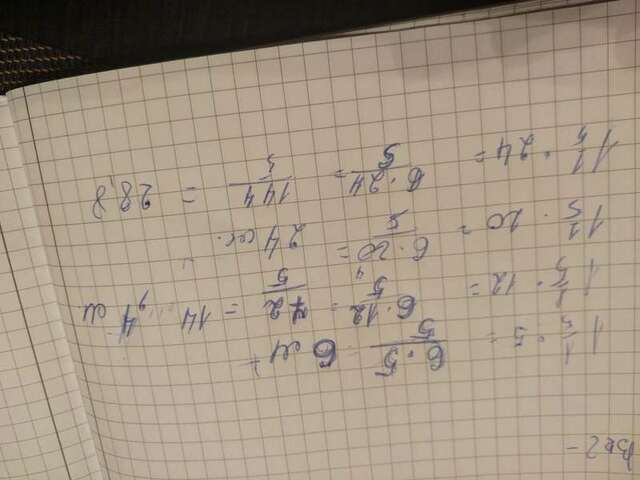 1 1/5 · 5 = 6·5/5 = 6 см
1 1/5 · 12 = 6·12/5 = 72/5 = 14,4 см
1 1/5 · 20 = 6·20/5 = 24 сек.
1 1/5 · 24 = 6·24/5 = 144/5 = 28,8